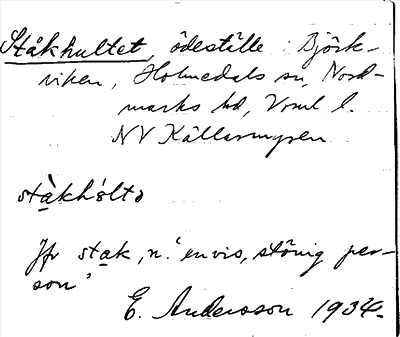 Ståkhultet, ödeställe i Björk-
viken, Holmedals sn, Nord-
marks hd, Vrml l.
NV Källarmyren
stàkhśltə
Jfr stak, n. 'envis, stönig per-
son'
E. Andersson 1934.